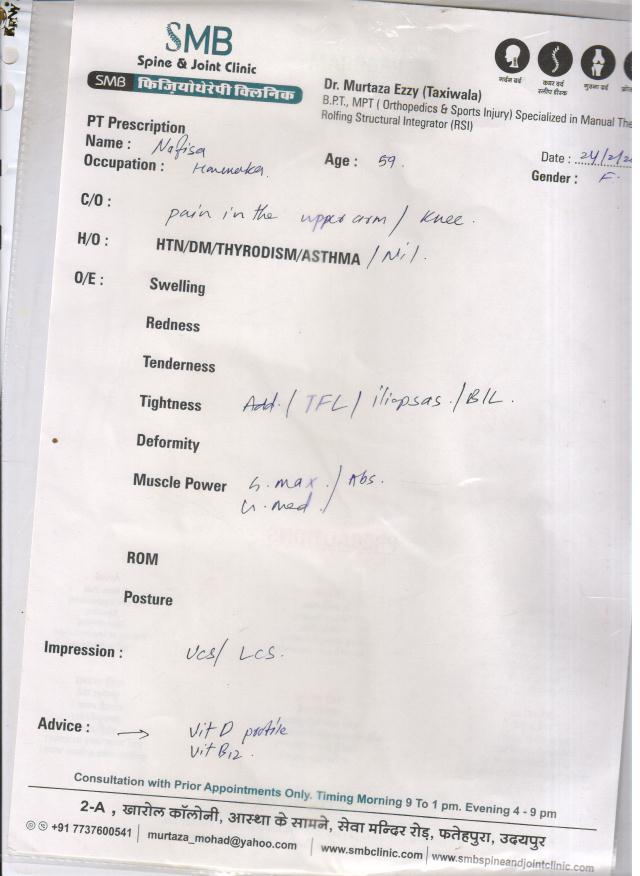 SMB
Spine & Joint Clinic
SMB फिजियोथेरेपी क्लिनिक
गर्दन दर्द
कमर दर्द
स्लीप डीस्क
घुटना दर्द
Dr. Murtaza Ezzy (Taxiwala)
B.P.T., MPT ( Orthopedics & Sports Injury) Specialized in Manual The
Rolfing Structural Integrator (RSI)
PT Prescription
Name : Nafisa
Age : 59.
Date : 24/2/20
Occupation :
Gender : F.
C/O : pain in the upper arm / Knee.
H/O : HTN/DM/THYRODISM/ASTHMA / Nil.
O/E : Swelling
Redness
Tenderness
Tightness Add. / TFL / iliopsas. / B/L.
Deformity
Muscle Power G.max. / Abs.
G.med /
ROM
Posture
Impression : UCS/ LCS.
Advice : → Vit D profile
Vit B12.
Consultation with Prior Appointments Only. Timing Morning 9 To 1 pm. Evening 4 - 9 pm
2-A , खारोल कॉलोनी, आस्था के सामने, सेवा मन्दिर रोड़, फतेहपुरा, उदयपुर
+91 7737600541 | murtaza_mohad@yahoo.com | www.smbclinic.com | www.smbspineandjointclinic.com